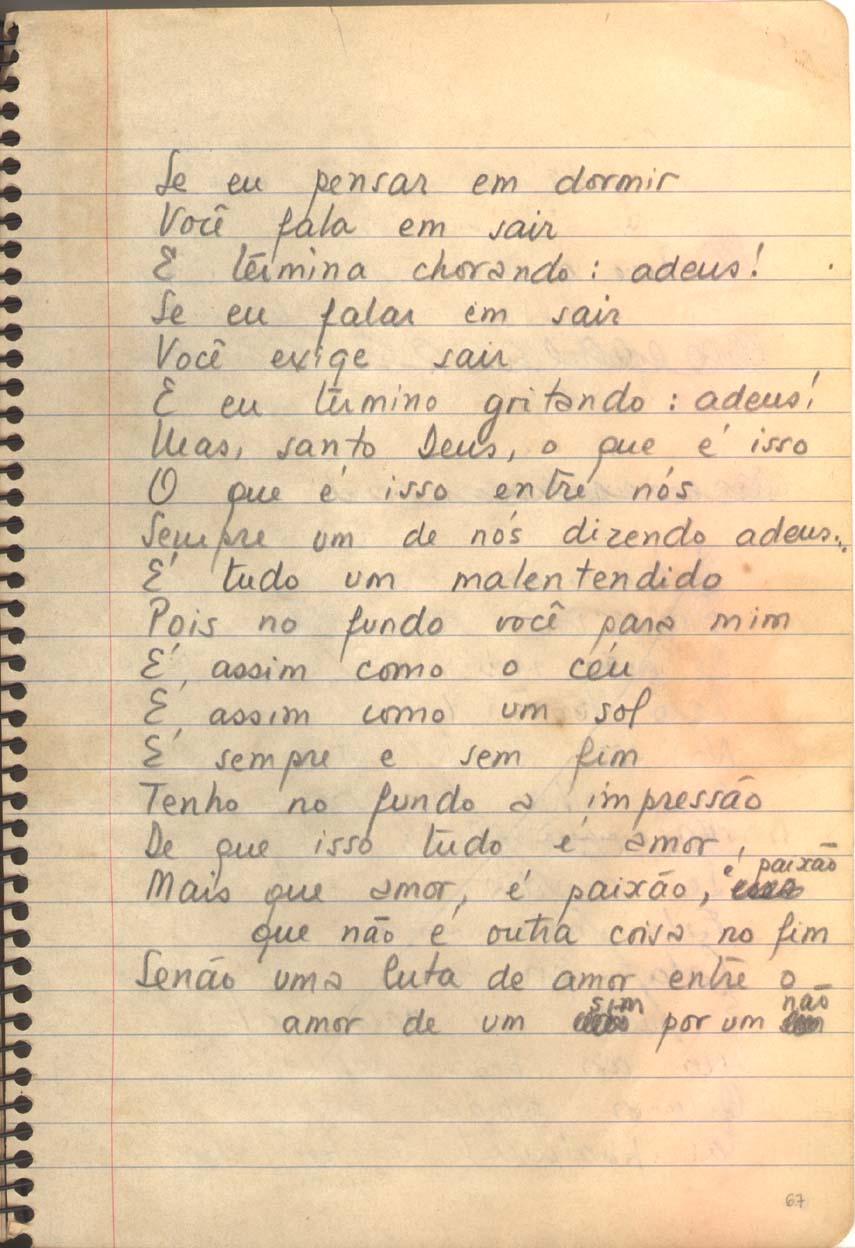 Se eu pensar em dormir
Você fala em sair
E termina chorando: adeus!
Se eu falar em sair
Você exige sair
E eu termino gritando: adeus!
Mas, santo Deus, o que é isso
O que é isso entre nós
Sempre um de nós dizendo adeus...
É tudo um malentendido
Pois no fundo você para mim
É, assim como o céu
É, assim como um sol
É sempre e sem fim
Tenho no fundo a impressão
De que isso tudo é amor,
Mais que amor, é paixão, é paixão
que não é outra coisa no fim
Senão uma luta de amor entre o
amor de um sim por um não
67